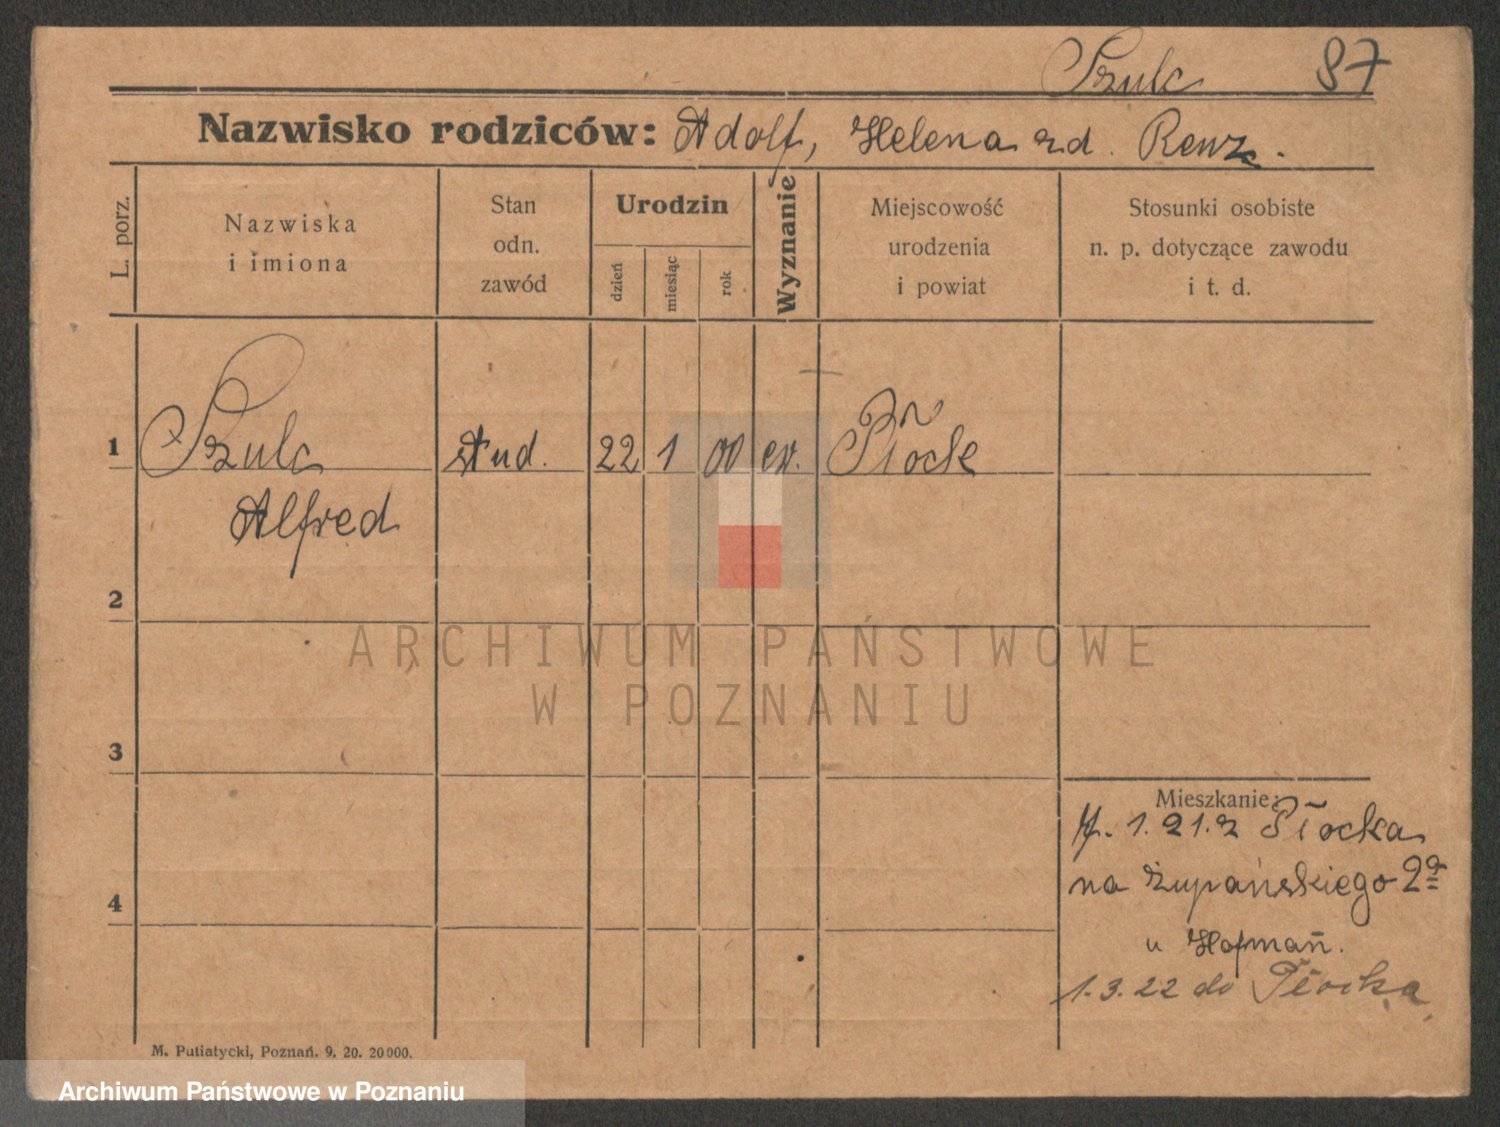 Szulc 87
Nazwisko rodziców: Adolf, Helena zd. Renz.
L. porz.
Nazwiska
i imiona
Stan
odn.
zawód
Urodzin
dzień
miesiąc
rok
Wyznanie
Miejscowość
urodzenia
i powiat
Stosunki osobiste
n. p. dotyczące zawodu
i t. d.
1 Szulc stud. 22 1 00 ew. Płock
Alfred
2
3
4
Mieszkanie:
1. 21. z Płocka
na Żupańskiego 2a
u Hofmań.
1.3.22 do Płocka
M. Putiatycki, Poznań. 9. 20. 20000.
ARCHIWUM PAŃSTWOWE
W POZNANIU
Archiwum Państwowe w Poznaniu